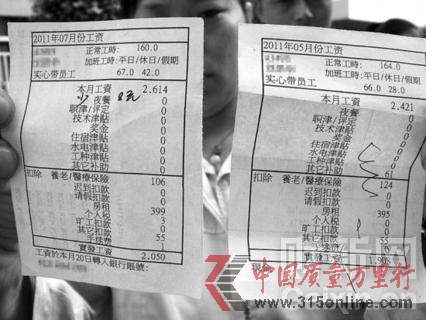 2011年07月份工资
正常工時: 160.0
加班工時:平日/休日/假期
实心带员工 67.0 42.0
本月工資 2,614
夜餐 0
职津/评定 0
技术津贴 0
奖金 0
住宿津贴 0
水电津贴 0
工种津贴 0
其它补助 0
扣除 養老/醫療保險 106
迟到扣款 0
请假扣款 0
房租 399
个人税 3
旷工扣款 0
其它扣款 55
手续费 0
實發工資 2,050
工資於本月20日轉入銀行賬號:
2011年05月份工资
正常工時: 164.0
加班工時:平日/休日/假期
实心带员工 66.0 28.0
本月工資 2,421
夜餐 0
职津/评定 0
技术津贴 0
奖金 0
住宿津贴 0
水电津贴 0
工种津贴 0
其它补助 61
扣除 養老/醫療保險 124
迟到扣款 0
请假扣款 0
房租 395
个人税 0
旷工扣款 0
其它扣款 55
實發工資
中国质量万里行
www.315online.com